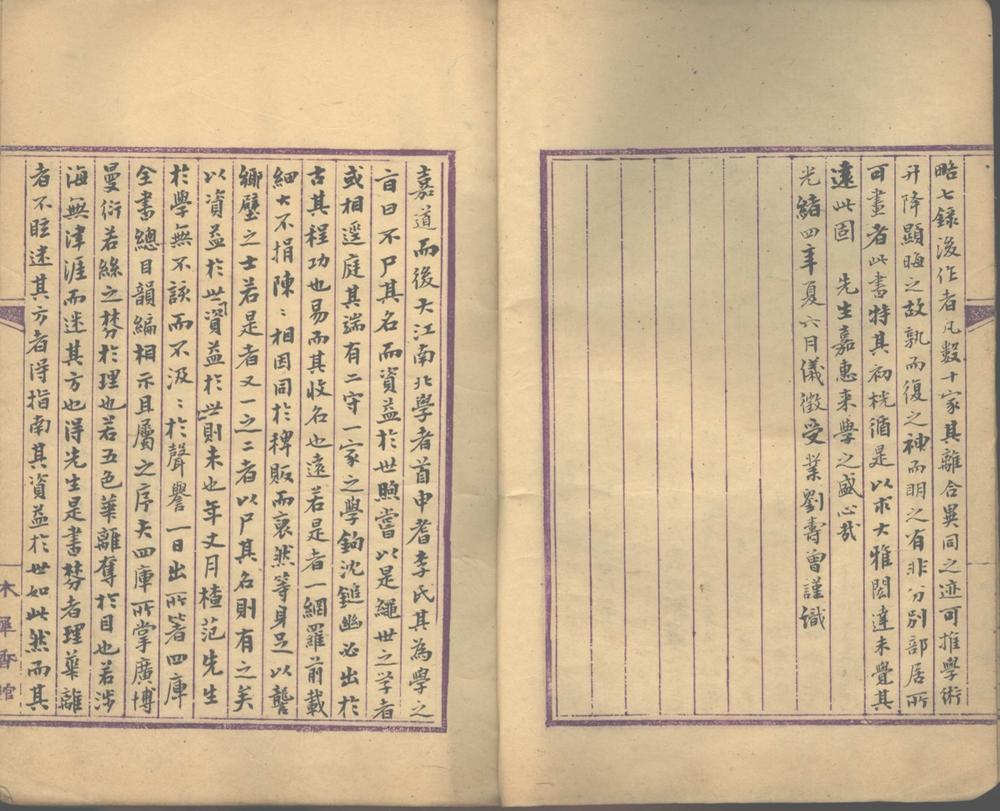 略七錄後作者凡數十家其離合異同之迹可推學術
升降顯晦之故孰而復之神而明之有非分別部居所
可畫者此書特其初桄循是以求大雅閎達未覺其
遠此固　先生嘉惠來學之盛心哉
光緒四年夏六月儀徵受業劉壽曾謹識
嘉道而後大江南北學者首申耆李氏其為學之
言曰不尸其名而資益於世煦嘗以是繩世之学者
或相逕庭其端有二守一家之學鉤沈鎚幽必出於
古其程功也易而其收名也遠若是者一網羅前載
細大不捐陳〻相因同於稗販而裒然等身足以讋
鄉壁之士若是者又一之二者以尸其名則有之矣
以資益於世資益於世則未也年丈月楂范先生
於學無不該而不汲〻於聲譽一日出所著四庫
全書總目韻編相示且屬之序夫四庫所掌廣博
曼衍若絲之棼於理也若五色華離奪於目也若涉
海無津涯而迷其方也得先生是書棼者理華離
者不眩迷其方者得指南其資益於世如此然而其
木犀香館